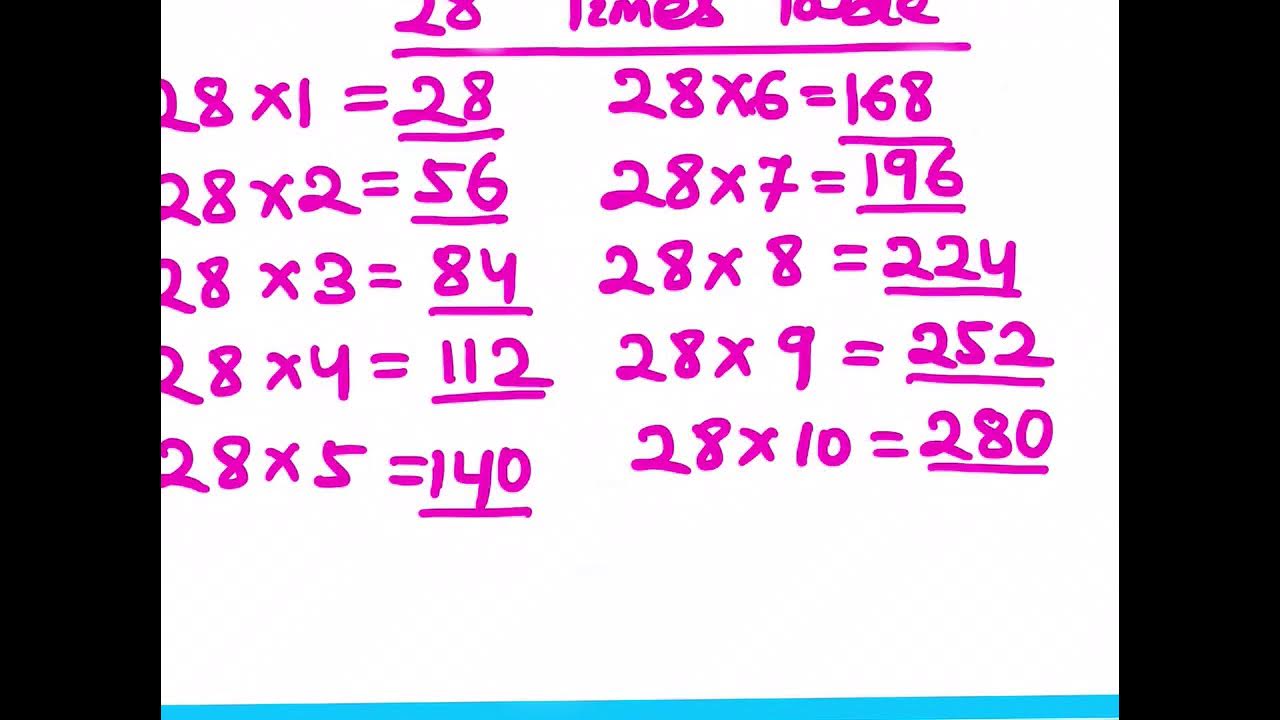 28 Times Table
28 × 1 = 28
28 × 2 = 56
28 × 3 = 84
28 × 4 = 112
28 × 5 = 140
28 × 6 = 168
28 × 7 = 196
28 × 8 = 224
28 × 9 = 252
28 × 10 = 280